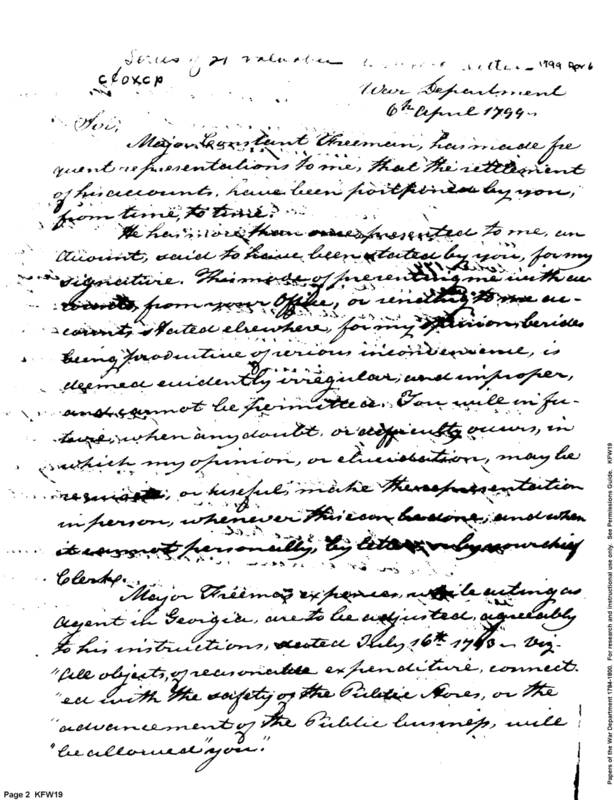 Series of 21 valuable letters 1799 Apr 6
c¢oxcp
War Department
6th April 1799
Sir,
Major Constant Freeman, has made fre
quent representations to me, that the settlement
of his accounts, have been postponed by you,
from time, to time.
He has more than once presented to me, an
account, said to have been stated by you, for my
signature. This mode of presenting me with ac
counts, from your Office, or sending to me ac-
counts stated elsewhere, for my opinion, besides
being productive of serious inconvenience, is
deemed evidently irregular, and improper,
and cannot be permitted. You will in fu-
ture, when any doubt, or difficulty occurs, in
which my opinion, or elucidation, may be
requisite, or useful, make the representation
in person, whenever this can be done, and when
it cannot personally, by letter or by your chief
Clerk.
Major Freeman's expences, while acting as
agent in Georgia, are to be adjusted, agreeably
to his instructions, dated July 16th 1793 - viz-
"All objects, of reasonable expenditure, connect
"ed with the safety of the Public Stores, or the
"advancement of the Public business, will
"be allowed "you."
Page 2 KFW19
Papers of the War Department 1784-1800. For research and instructional use only. See Permissions Guide. KFW19